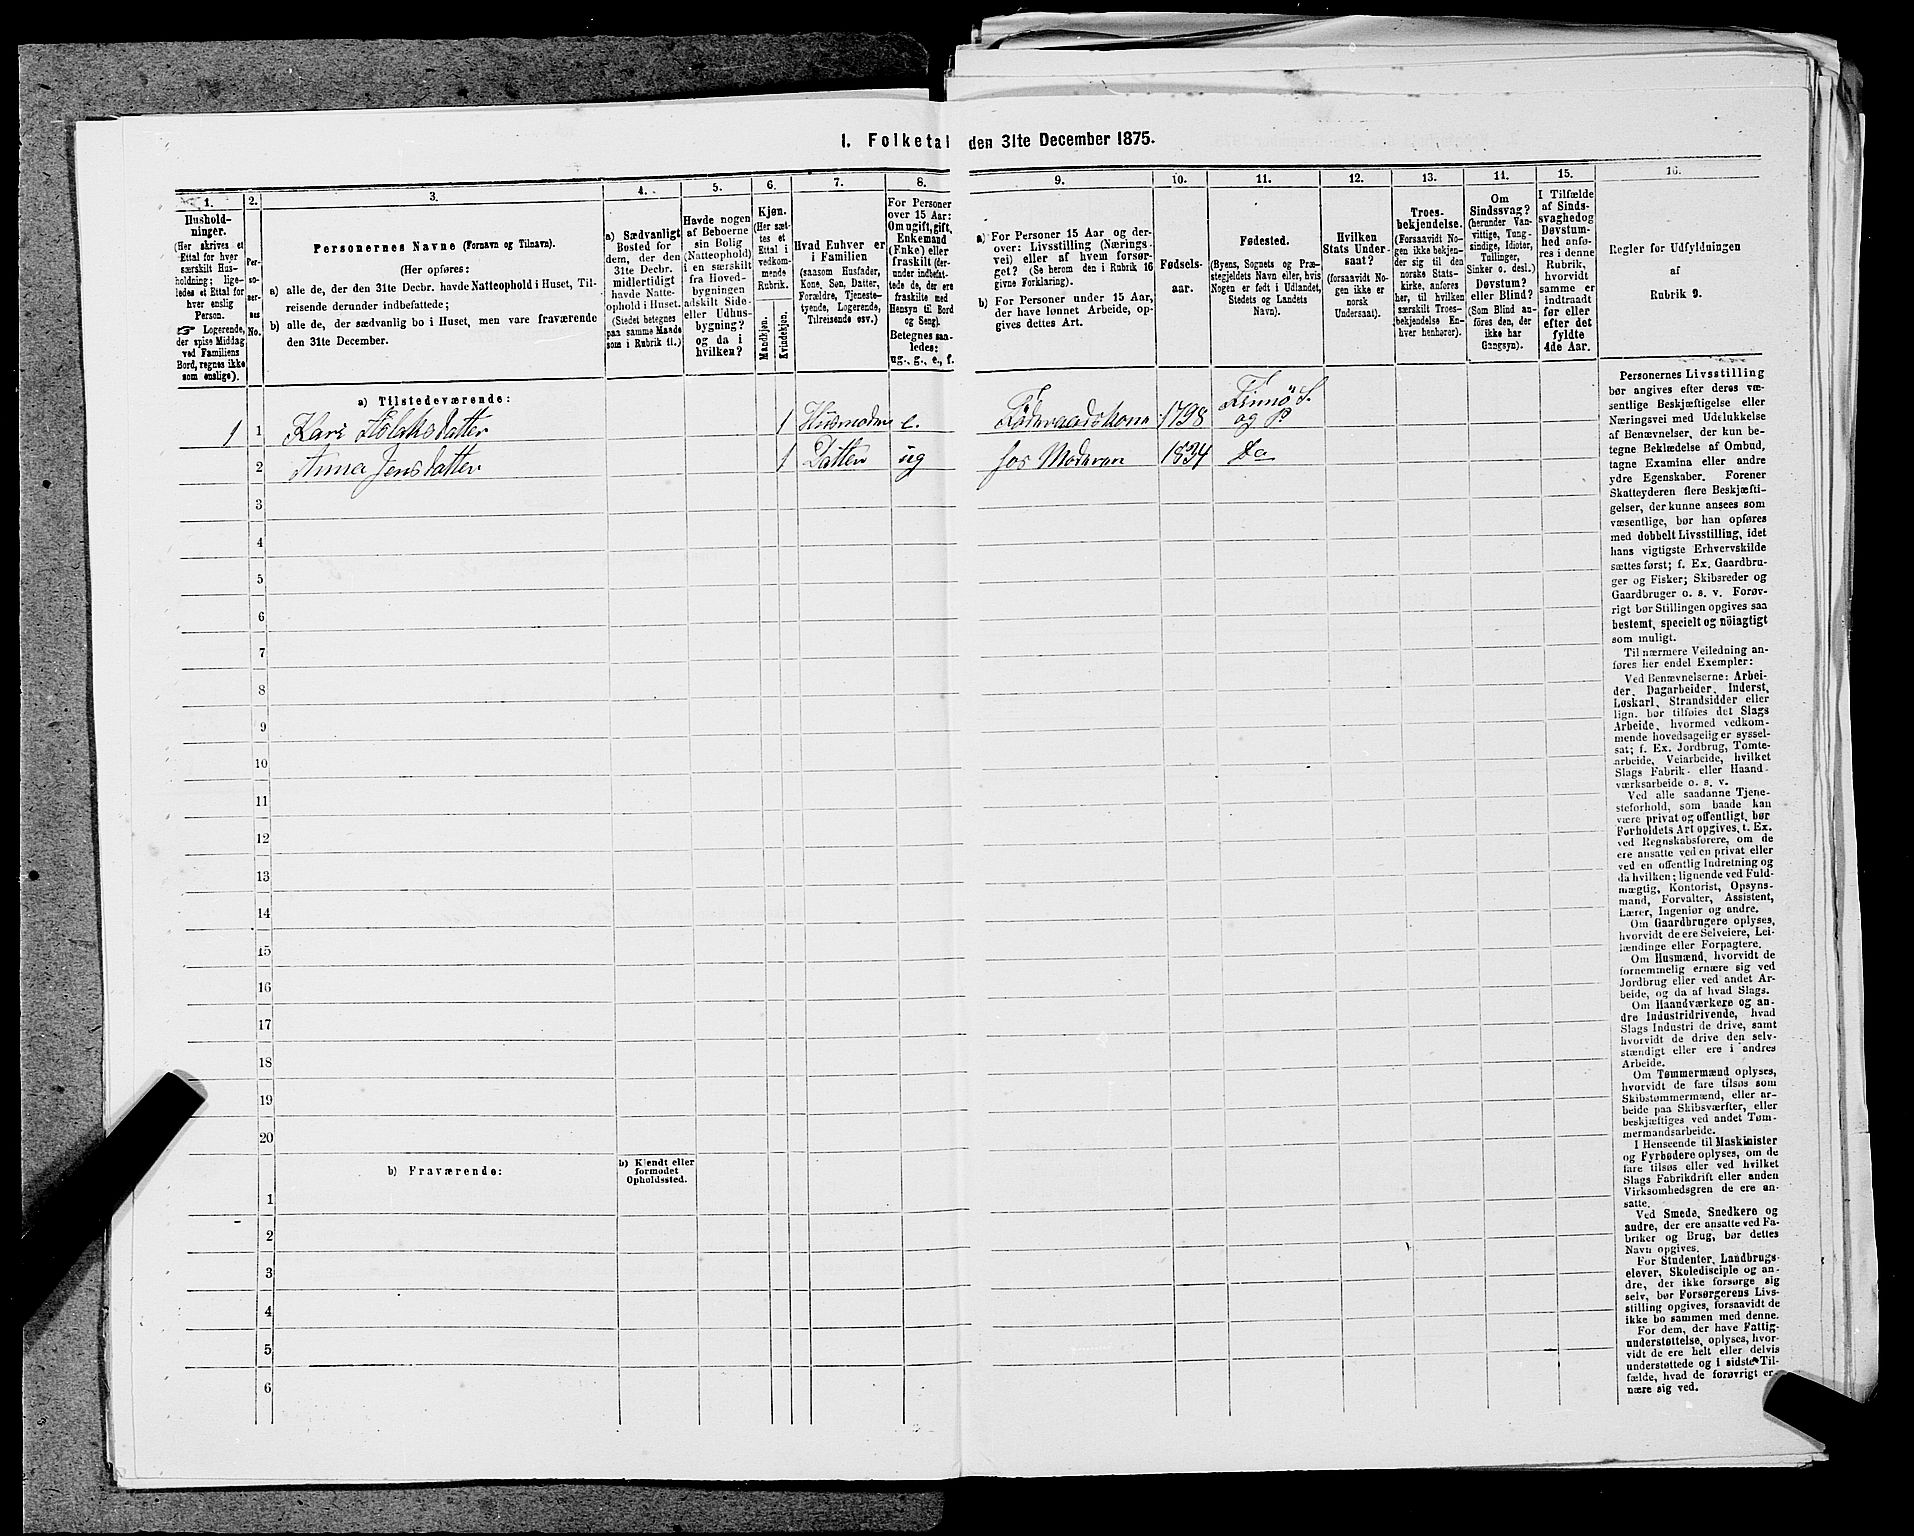 I. Folketal den 31te December 1875.
1.
2.
3.
4.
5.
6.
7.
8.
9.
10.
11.
12.
13.
14.
15.
16.
Hushold-
ninger.
(Her skrives et
Ettal for hver
særskilt Hus-
holdning; lige-
ledes et Ettal for
hver enslig
Person.
☞ Logerende,
der spise Middag
ved Familiens
Bord, regnes ikke
som enslige).
Per-
so-
ner-
nes
No.
Personernes Navne (Fornavn og Tilnavn).
(Her opføres:
a) alle de, der den 31te Decbr. havde Natteophold i Huset, Til-
reisende derunder indbefattede;
b) alle de, der sædvanlig bo i Huset, men vare fraværende
den 31te December.
a) Sædvanligt
Bosted for
dem, der den
31te Decbr.
midlertidigt
havde Natte-
ophold i Huset.
(Stedet betegnes
paa samme Maade
som i Rubrik 11.)
Havde nogen
af Beboerne
sin Bolig
(Natteophold)
i en særskilt
fra Hoved-
bygningen
adskilt Side-
eller Udhus-
bygning?
og da i
hvilken?
Kjøn.
(Her sæt-
tes et
Ettal i
vedkom-
mende
Rubrik.
Mandkjøn.
Kvindekjøn.
Hvad Enhver er
i Familien
(saasom Husfader,
Kone, Søn, Datter,
Forældre, Tjeneste-
tyende, Logerende,
Tilreisende osv.)
For Personer
over 15 Aar:
Om ugift, gift,
Enkemand
(Enke) eller
fraskilt (der-
under indbefat-
tede de, der ere
fraskilte med
Hensyn til Bord
og Seng).
Betegnes saa-
ledes:
ug., g., e., f.
a) For Personer 15 Aar og der-
over: Livsstilling (Nærings-
vei) eller af hvem forsør-
get? (Se herom den i Rubrik 16
givne Forklaring).
b) For Personer under 15 Aar,
der have lønnet Arbeide, op-
gives dettes Art.
Fødsels-
aar.
Fødested.
(Byens, Sognets og Præ-
stegjeldets Navn eller, hvis
Nogen er født i Udlandet,
Stedets og Landets
Navn).
Hvilken
Stats Under-
saat?
(forsaavidt No-
gen ikke er
norsk
Undersaat).
Troes-
bekjendelse.
(Forsaavidt No-
gen ikke bekjen-
der sig til den
norske Stats-
kirke, anføres
her, til hvilken
særskilt Troes-
bekjendelse En-
hver henhører).
Om
Sindssvag?
(herunder Van-
vittige, Tung-
sindige, Idioter,
Tullinger,
Sinker o. desl.)
Døvstum?
eller Blind?
(Som Blind an-
føres den, der
ikke har
Gangsyn).
I Tilfælde
af Sinds-
svaghed og
Døvstum-
hed anfø-
res i denne
Rubrik,
hvorvidt
samme er
indtraadt
før eller
efter det
fyldte
4de Aar.
Regler for Udfyldningen
af
Rubrik 9.
a) Tilstedeværende:
1 1 Kari Aslaksdatter 1 Husmoder e. Föderaadskone 1798 Finnö S. og P.
2 Anna Jensdatter 1 Datter ug fos Moderen 1834 Do
3
4
5
6
7
8
9
10
11
12
13
14
15
16
17
18
19
20
b) Fraværende:
b) Kjendt eller
formodet
Opholdssted.
1
2
3
4
5
6
Personernes Livsstilling
bør angives efter deres væ-
sentlige Beskjæftigelse eller
Næringsvei med Udelukkelse
af Benævnelser, der kun be-
tegne Beklædelse af Ombud,
tagne Examina eller andre
ydre Egenskaber. Forener
Skatteyderen flere Beskjæfti-
gelser, der kunne ansees som
væsentlige, bør han opføres
med dobbelt Livsstilling, idet
hans vigtigste Erhvervskilde
sættes først; f. Ex. Gaardbru-
ger og Fisker; Skibsreder og
Gaardbruger o. s. v. Forøv-
rigt bør Stillingen opgives saa
bestemt, specielt og nöiagtigt
som muligt.
Til nærmere Veiledning an-
føres her endel Exempler:
Ved Benævnelserne: Arbei-
der, Dagarbeider, Inderst,
Løskarl, Strandsidder eller
lign. bør tilføies det Slags
Arbeide, hvormed vedkom-
mende hovedsagelig er syssel-
sat; f. Ex. Jordbrug, Tomte-
arbeide, Veiarbeide, hvilket
Slags Fabrik- eller Haand-
værksarbeide o. s. v.
Ved alle saadanne Tjene-
steforhold, som baade kan
være privat og offentligt, bør
Forholdets Art opgives, t. Ex.
ved Regnskabsførere, om de
ere ansatte ved en privat eller
ved en offentlig Indretning og
da hvilken; lignende ved Fuld-
mægtig, Kontorist, Opsyns-
mand, Forvalter, Assistent,
Lærer, Ingeniør og andre.
Om Gaardbrugere oplyses,
hvorvidt de ere Selveiere, Lei-
lændinge eller Forpagtere.
Om Husmænd, hvorvidt de
fornemmelig ernære sig ved
Jordbrug eller ved andet Ar-
beide, og da af hvad Slags.
Om Haandværkere og an-
dre Industridrivende, hvad
Slags Industri de drive, samt
hvorvidt de drive den selv-
stændigt eller ere i andres
Arbeide.
Om Tømmermænd oplyses,
hvorvidt de fare tilsøs som
Skibstømmermænd, eller ar-
beide paa Skibsværfter, eller
beskjæftiges ved andet Tøm-
mermandsarbeide.
I Henseende til Maskinister
og Fyrbødere oplyses, om de
fare tilsøs eller ved hvilket
Slags Fabrikdrift eller anden
Virksomhedsgren de ere an-
satte.
Ved Smede, Snedkere og
andre, der ere ansatte ved Fa-
briker og Brug, bør dettes
Navn opgives.
For Studenter, Landbrugs-
elever, Skoledisciple og an-
dre, der ikke forsørge sig
selv, bør Forsørgerens Livs-
stilling opgives, forsaavidt de
ikke bo sammen med denne.
For dem, der have Fattig-
understøttelse, oplyses, hvor-
vidt de ere helt eller delvis
understøttede og i sidste Til-
fælde, hvad de forøvrigt er-
nære sig ved.